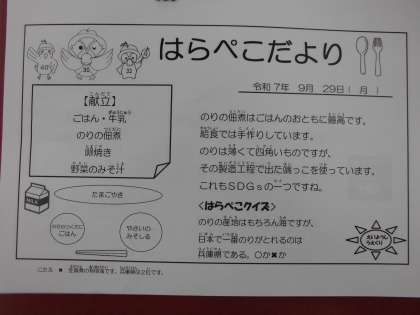 はらぺこだより
令和7年 9月 29日( 月 )
【献立】
ごはん・牛乳
のりの佃煮
卵焼き
野菜のみそ汁
のりの佃煮はごはんのおともに最高です。
給食では手作りしています。
のりは薄くて四角いものですが、
その製造工程で出た端っこを使っています。
これもSDGsの一つですね。
<はらぺこクイズ>
のりの産地はもちろん海ですが、
日本で一番のりがとれるのは
兵庫県である。〇か✖か
MILK
たまごやき
ごはん
やさいの
みそしる
こたえ ✖ 佐賀県の有明海です。兵庫県は2位です。